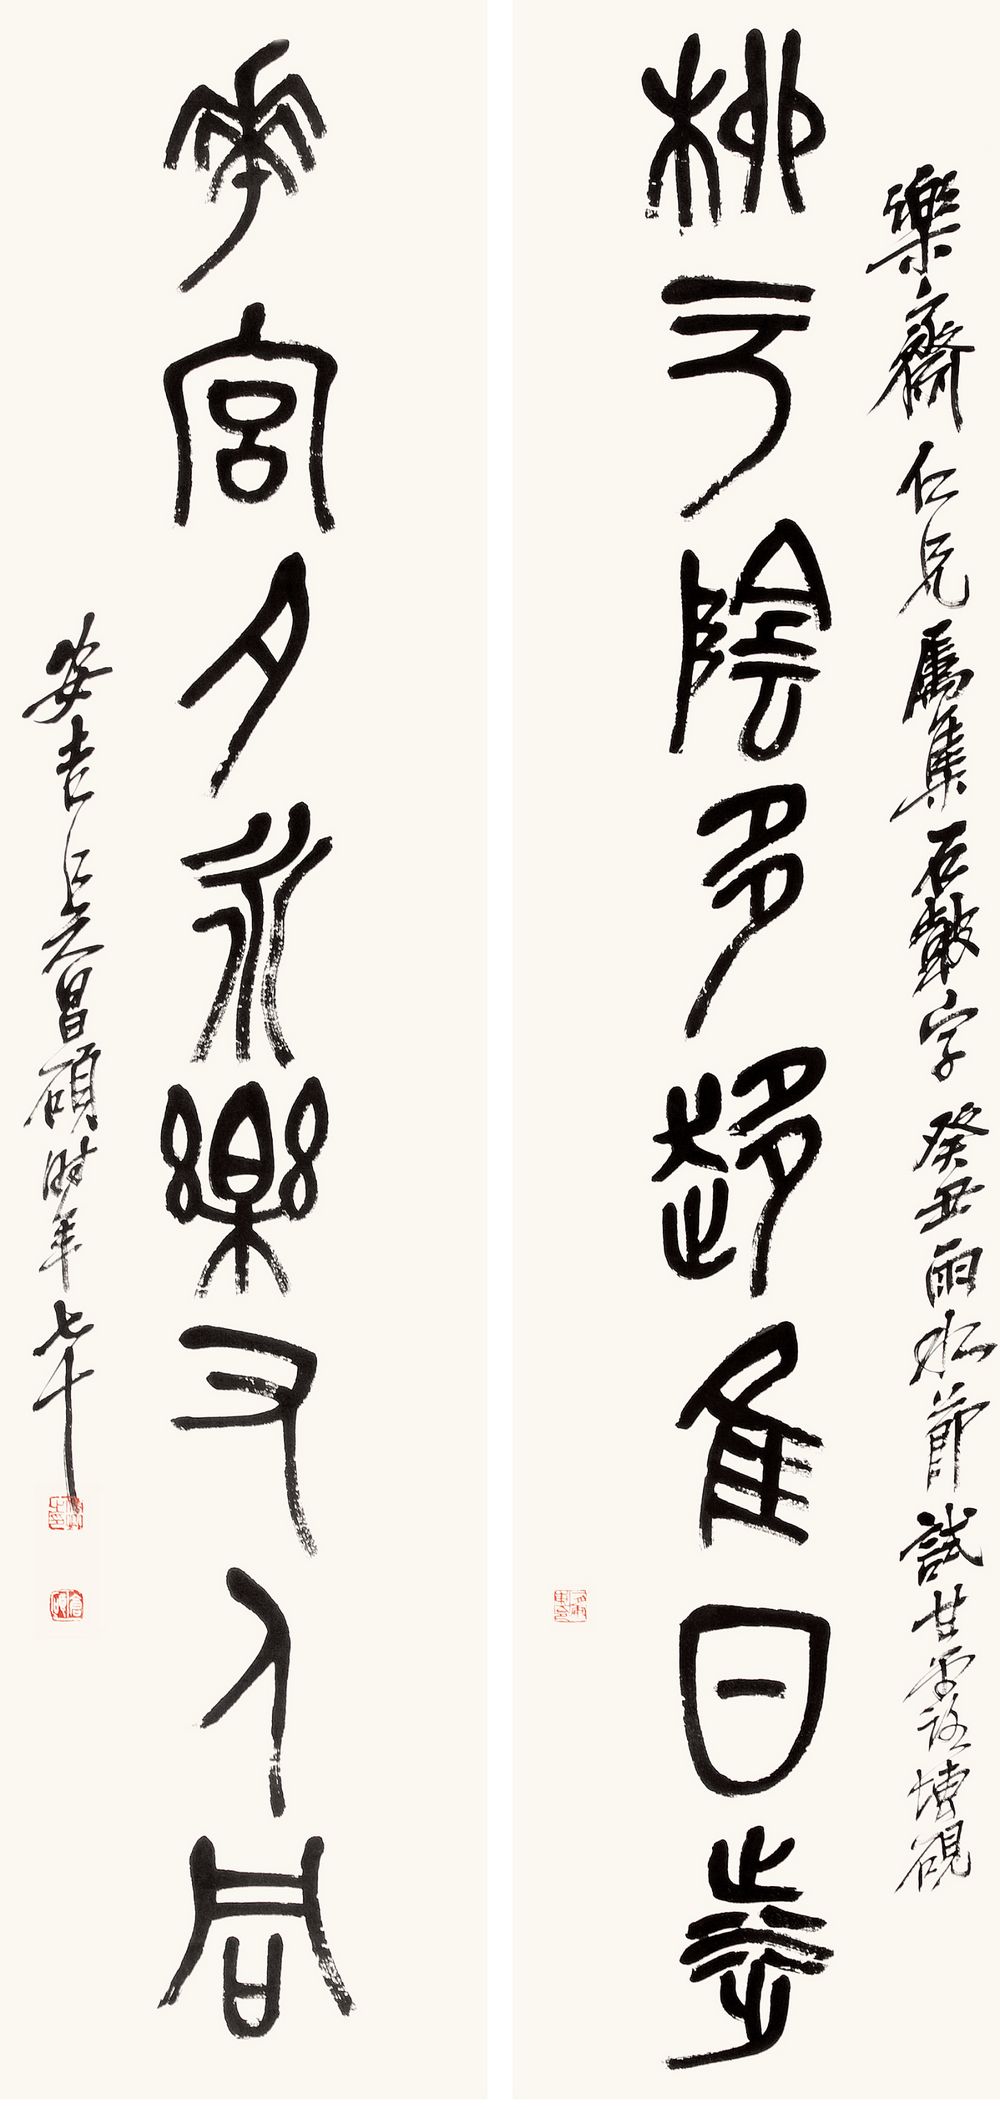 樂齋仁兄屬集石鼓字癸丑雨水節試甘露塼硯
柳亏陰多趍隹日涉
華宮夕永樂又人同
安吉吳昌碩時年七十